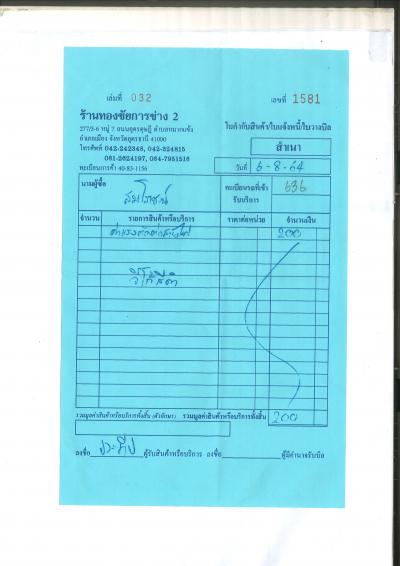 เล่มที่ 032 เลขที่ 1581
ร้านทองชัยการช่าง 2
277/5-6 หมู่ 7 ถนนอุดรดุษฎี ตำบลหมากแข้ง
อำเภอเมือง จังหวัดอุดรธานี 41000
โทรศัพท์ 042-242348, 042-324815
081-2624197, 084-7951516
ทะเบียนการค้า 40-83-1156
ใบกำกับสินค้า/ใบแจ้งหนี้/ใบวางบิล
สำเนา
วันที่ 6-8-64
นามผู้ซื้อ
ทะเบียนรถที่เข้ารับบริการ 636
จำนวน รายการสินค้าหรือบริการ ราคาต่อหน่วย จำนวนเงิน
200
รวมมูลค่าสินค้าหรือบริการทั้งสิ้น (ตัวอักษร) รวมมูลค่าสินค้าหรือบริการทั้งสิ้น 200
ลงชื่อ ประทีป ผู้รับสินค้าหรือบริการ ลงชื่อ ผู้มีอำนาจรับบิล